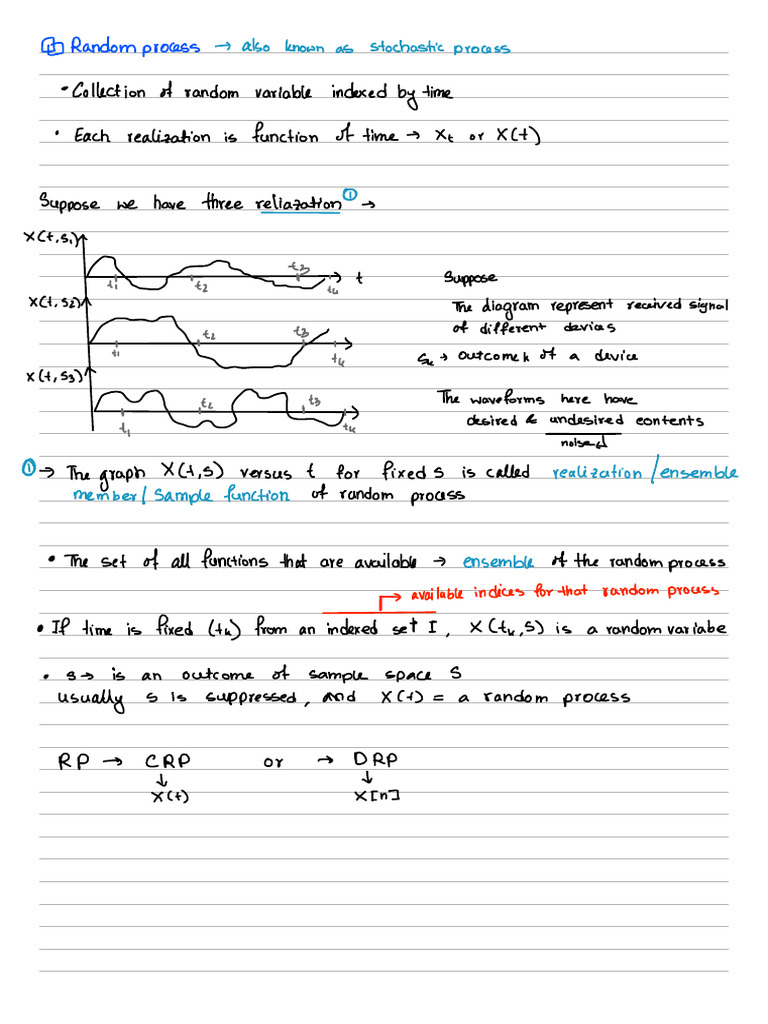 Random process → also known as stochastic process
• Collection of random variable indexed by time
• Each realization is function of time → Xt or X(t)
Suppose we have three reliazation ① →
X(t,s1)
t1 t2 t3 t4 t
X(t,s2)
t1 t2 t3 t4
X(t,s3)
t1 t2 t3 t4
Suppose
The diagram represent received signal
of different devices
Sk → outcome k of a device
The waveforms here have
desired & undesired contents
noised
① → The graph X(t,s) versus t for fixed s is called realization/ensemble
member/sample function of random process
• The set of all functions that are available → ensemble of the random process
→ available indices for that random process
• If time is fixed (tk) from an indexed set I, X(tk,s) is a random variabe
• s → is an outcome of sample space S
usually s is suppressed, and X(t) = a random process
RP → CRP or → DRP
↓ ↓
X(t) X[n]